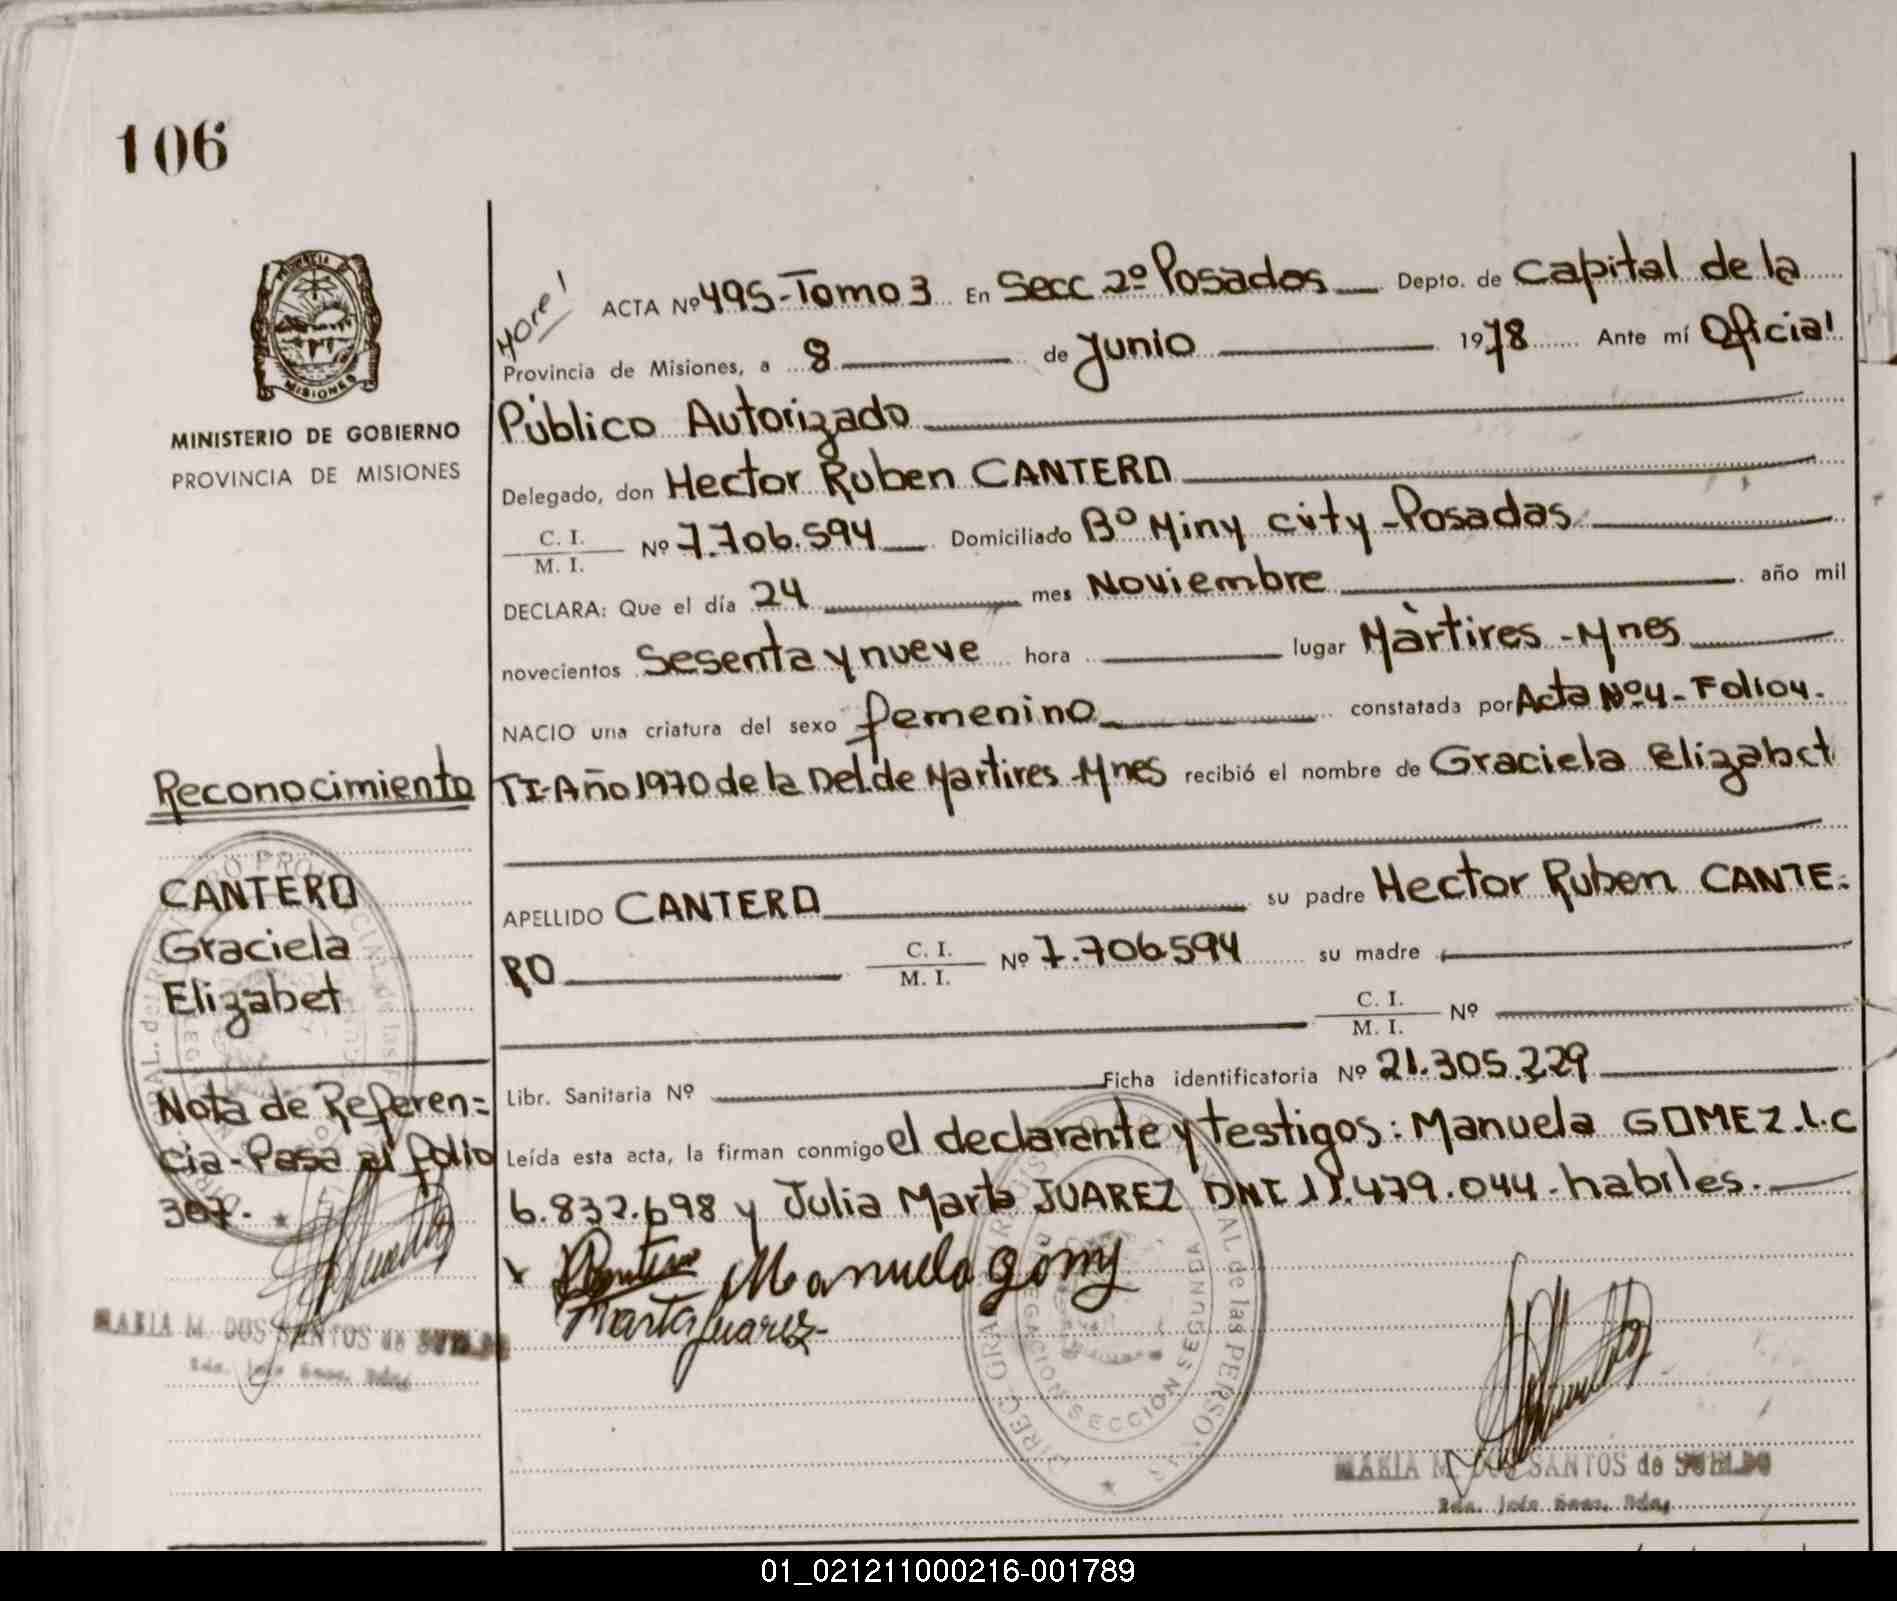 106
MINISTERIO DE GOBIERNO
PROVINCIA DE MISIONES
ACTA Nº 495-Tomo 3 En Secc 2º Posadas Depto. de Capital de la
Provincia de Misiones, a 8 de Junio 1978 Ante mí Oficial
Público Autorizado
Delegado, don Hector Ruben CANTERO
C. I.
M. I. Nº 7.706.594 Domiciliado Bº Miny city - Posadas
DECLARA: Que el día 24 mes Noviembre año mil
novecientos Sesenta y nueve hora lugar Màrtires - Mnes
NACIO una criatura del sexo femenino constatada por Acta Nº 4 - Folio 4.
TI-Año 1970 de la Del. de Martires - Mnes recibió el nombre de Graciela Elizabet
APELLIDO CANTERO su padre Hector Ruben CANTE=
RO C. I.
M. I. Nº 7.706594 su madre
C. I.
M. I. Nº
Libr. Sanitaria Nº Ficha identificatoria Nº 21.305.229
Leída esta acta, la firman conmigo el declarante y testigos: Manuela GOMEZ. L.C
6.832.698 y Julia Marta JUAREZ DNI 11.479.044 - habiles.
Manuela Gómez
Marta Juarez
Reconocimiento
CANTERO
Graciela
Elizabet
Nota de Referen=
cia - Pasa al folio
307.
MARIA M. DOS SANTOS de SUELDO
MARIA M. DOS SANTOS de SUELDO
DELEGACION SECCION SEGUNDA
01_021211000216-001789